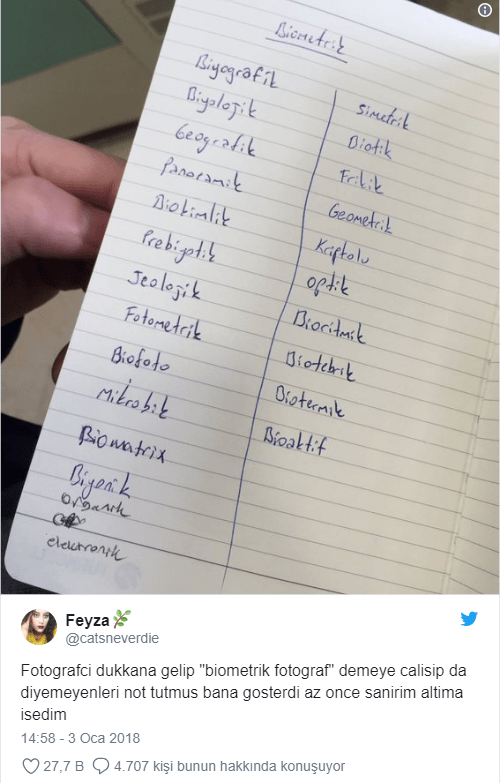 Biometrik
Biyografik
Biyolojik
Geografik
Panoramik
Biokimlik
Prebiyotik
Jeolojik
Fotometrik
Biofoto
Mikrobik
Biomatrix
Biyonik
organik
elektronik
Simetrik
Biotik
Frikik
Geometrik
Kriptolu
optik
Bioritmik
Biotebrik
Biotermik
Bioaktif
Feyza
@catsneverdie
Fotografci dukkana gelip "biometrik fotograf" demeye calisip da
diyemeyenleri not tutmus bana gosterdi az once sanirim altima
isedim
14:58 - 3 Oca 2018
27,7 B 4.707 kişi bunun hakkında konuşuyor